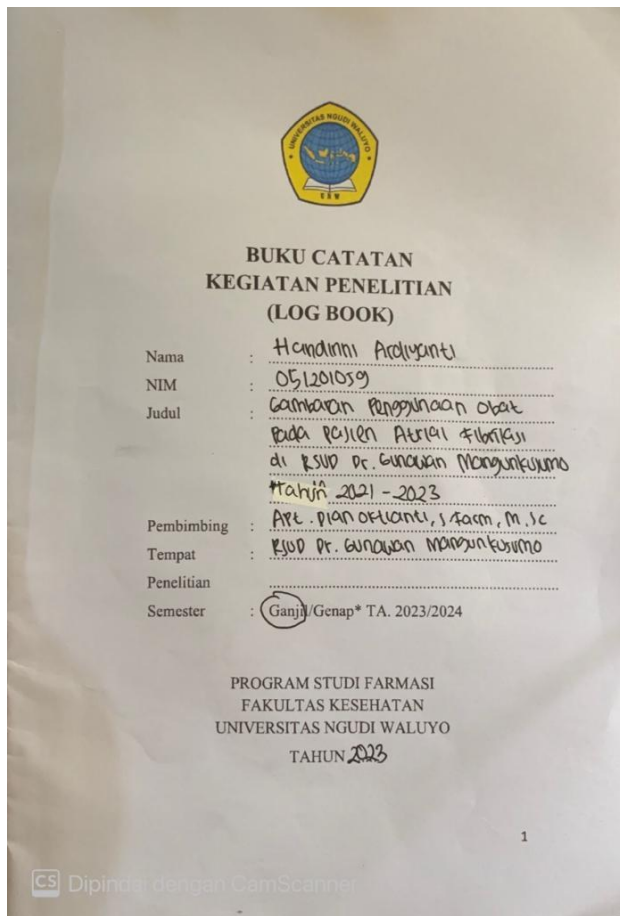 UNIVERSITAS NGUDI WALUYO
UNW
BUKU CATATAN
KEGIATAN PENELITIAN
(LOG BOOK)
Nama : Handinni Ardiyanti
NIM : 051201059
Judul : Gambaran Penggunaan Obat
pada pasien Atrial Fibrilasi
di RSUD Dr. Gunawan Mangunkusumo
Tahun 2021 - 2023
Pembimbing : Apt. Dian Oktianti, S.Farm, M.Sc
Tempat : RSUD Dr. Gunawan Mangunkusumo
Penelitian
Semester : Ganjil/Genap* TA. 2023/2024
PROGRAM STUDI FARMASI
FAKULTAS KESEHATAN
UNIVERSITAS NGUDI WALUYO
TAHUN 2023
1
CS Dipindai dengan CamScanner